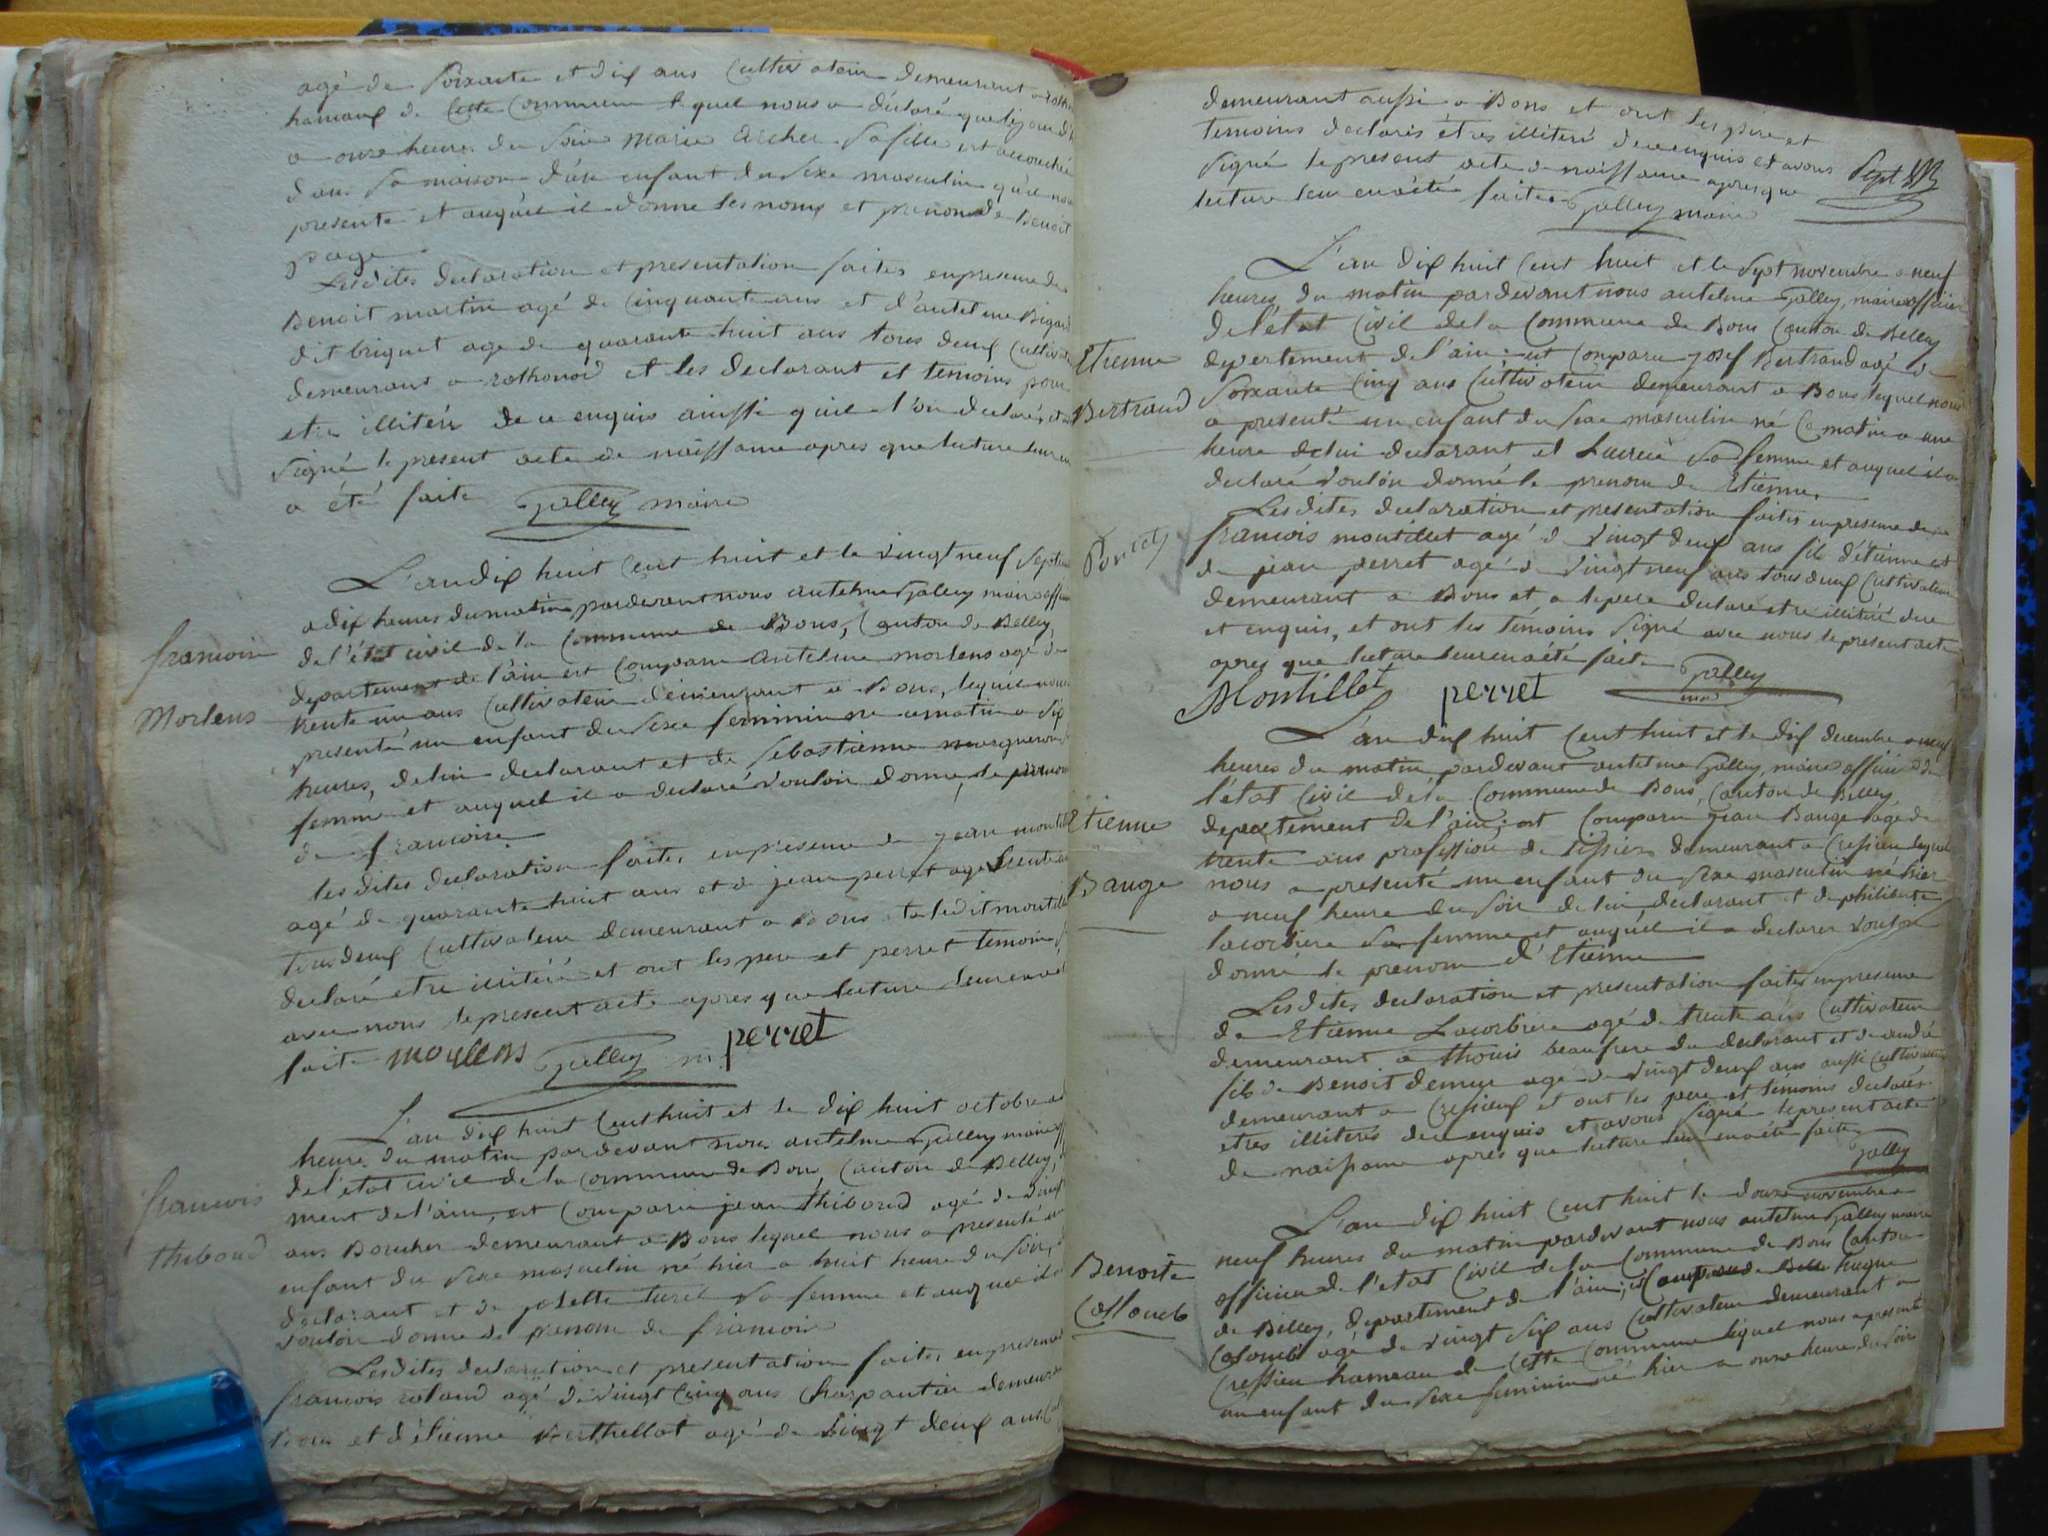 agé de soixante et dix ans Cultivateur demeurant a
hamaux de Cette Commune lequel nous a déclaré que
a onze heures du Soir Marie Archer Sa fille est accouchée
dans Sa maison d'un enfant du Sexe masculin qu'il nous
presente et auquel il donne les noms et prenoms de Benoit
page
Lesdites declaration et presentation faites en presence de
Benoit martin agé de Cinquante ans et d'antelme Bigard
dit briquet age de quarante huit ans tous deux Cultiva
demeurant a rothonod et les declarant et temoins pour
etre illiteré de ce enquis ainssi quil l'on declaré, et
Signé le present acte de naissance apres que lecture leur en
a été faite Galley maire
L'an dix huit Cent huit et le vingt neuf Septe
a dix heures du matin, pardevant nous antelme Galley maire off
francoise
de l'état civil de la Commune de Bons, Canton de Belley
departement de l'ain est Comparu Antelme morlens agé de
Morlens
trente un ans Cultivateur demeurant a Bons, lequel nous
presenté un enfant du Sexe feminin né ce matin a Six
heures, de lui declarant et de Sebastienne
femme et auquel il a declaré vouloir donné le prenom
de francoise
les dites declaration faites en presence de jean montil
agé de quarante huit ans et de jean perret agé trente
tous deux Cultivateur demeurant a Bons et le dit montille
declaré etre illitéré et ont les pere et perret temoins
avec nous le present acte apres que lecture leur en a é
faite morlens Galley m. perret
L'an dix huit Cent huit et le dix huit octobre a
heure du matin pardevant nous antelme Galley maire off
de l'etat civil de la Commune de Bons, Canton de Belley,
francois
ment de l'ain, est Comparu jean thiboud agé de vingt
thiboud
ans Boucher demeurant a Bons lequel nous a presenté un
enfant du Sexe masculin né hier a huit heure du Soir,
declarant et de josette Sa femme et auquel il
vouloir donné le prenom de francois
Lesdites declaration et presentation faites en presence
francois roland agé de vingt Cinq ans Charpantier demeurant
Bons et d'étienne berthellot agé de vingt deux ans
demeurant aussi a Bons et ont les pere et
temoins declarés êtres illiteré de ce enquis et avons
Signé le present acte de naissance apres que
lecture leur en a été faites Galley maire
L'an dix huit Cent huit et le Sept novembre a neuf
heures du matin pardevant nous antelme Galley, maire officier
de l'état Civil de la Commune de Bons Canton de Belley
Etienne
departement de l'ain; est Comparu josef Bertrand agé de
Bertrand
Soixante Cinq ans Cultivateur demeurant a Bons lequel nous
a presenté un enfant du Sexe masculin né Ce matin a une
heure de lui declarant et Sa femme et auquel il a
declaré vouloir donné le prenom de Etienne.
Lesdites declaration et presentation faites en presence de
francois montillet agé de vingt deux ans fils d'étienne et
de jean perret agé de vingt neuf ans tous deux Cultivateur
demeurant a Bons et a le pere declaré etre illitéré de ce
et enquis, et ont les témoins Signé avec nous le present acte
apres que lecture leur en a été faite Galley
Montillet perret
L'an dix huit Cent huit et le dix decembre a neuf
heures du matin pardevant antelme Galley, maire officier de
l'état Civil de la Commune de Bons, Canton de Belley
Etienne
departement de l'ain; est Comparu jean Bauge agé de
trente ans profession de tissier demeurant a Cressieu lequel
Bauge
nous a presenté un enfant du Sexe masculin né hier
a neuf heure du Soir de lui declarant et de philiberte
lacorbiere Sa femme et auquel il a declarer vouloir
donné le prenom d'Etienne
Lesdites declaration et presentation faites en presence
de Etienne Lacorbiere agé de trente ans Cultivateur
demeurant a thouis beaufrere du declarant et de andré
fils de Benoit agé de vingt deux ans aussi Cultivateur
demeurant a Cressieux et ont les pere et témoins declarés
etres illiterés de ce enquis et avons Signé le present acte
de naissance apres que lecture leur en a été faite
Galley
L'an dix huit Cent huit le douze novembre a
neuf heures du matin pardevant nous antelme Galley maire
Benoite
officier de l'etat Civil de la Commune de Bons Canton
de Belley, departement de l'ain; est hugue
agé de vingt Six ans Cultivateur demeurant a
Cressieu hameau de Cette Commune lequel nous a presenté
un enfant du Sexe feminin né hier a onze heure du Soir